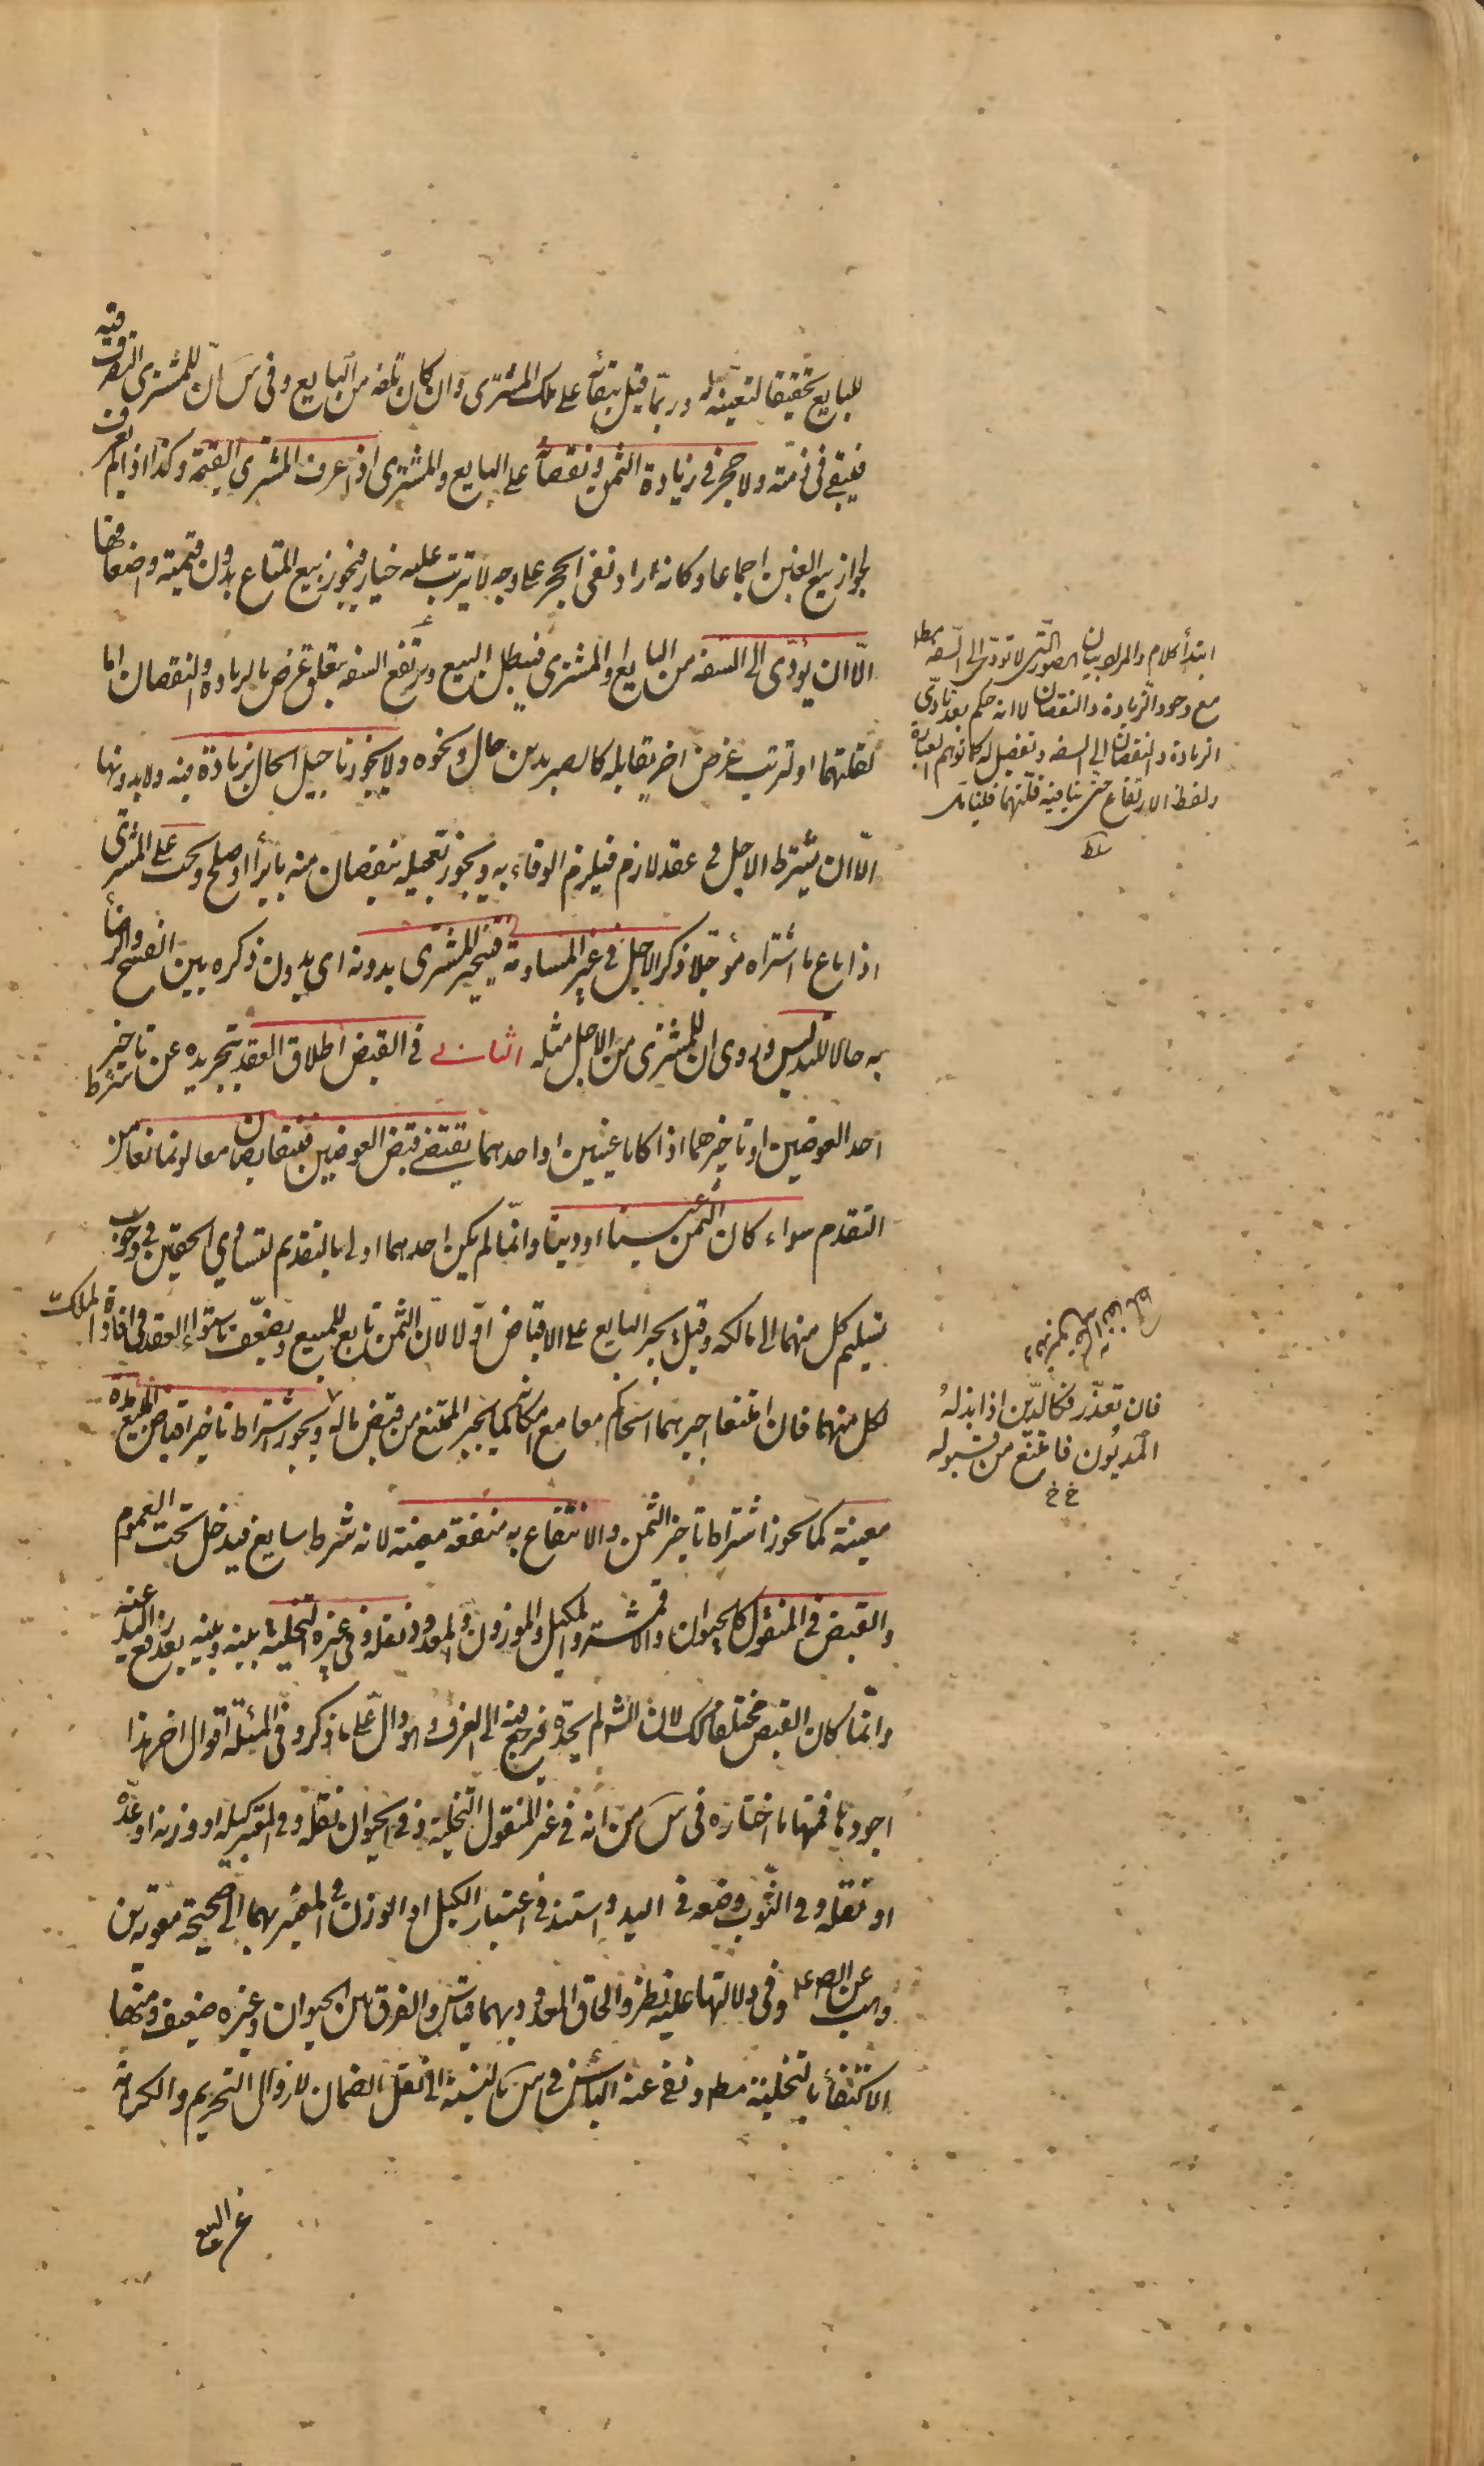 للبایع تحقیقا لتعینه له وربّما قیل ببقائه علی ملک المشتری وان کان تلفه من البایع وفی س انّ للمشتری التصرف فیه
فیبقی فی ذمته ولا حجر فی زیادة الثمن ونقصانه علی البایع والمشتری اذا عرف المشتری القیمة وکذا اذا لم یعرف
لجواز بیع الغبن اجماعا وکانه اراد نفی الحجر علی وجه لا یترتب علیه خیار فیجوز بیع المتاع بدون قیمته واضعافها
الّا ان یؤدّی الی السفه من البایع او المشتری فیبطل البیع ویرتفع السفه بتعلق غرض بالزیادة والنقصان اما
لقلتهما او لترتب غرض اخر یقابله کالصبر بدین حال ونحوه ولا یجوز تاجیل الحال بزیادة فیه ولا بدونها
الّا ان یشترط الاجل فی عقد لازم فیلزم الوفاء به ویجوز تعجیله بنقصان منه بابرأ او صلح ویجب علی المشتری
اذا باع ما اشتراه مؤجّلا ذکر الاجل فی غیر المساومة فیتخیر للمشتری بدونه ای بدون ذکره بین الفسخ والرضا
به حالا للتدلیس وروی ان للمشتری من الاجل مثله الثانی فی القبض اطلاق العقد بتجریده عن شرط تاخیر
احد العوضین او تاخیرهما اذا کانا عینین او احدهما یقتضی قبض العوضین فیتقابضان معا لو تمانعا من
التقدم سواء کان الثمن عینا او دینا وانّما لم یکن احدهما اولی بالتقدیم لتساوی الحقین فی وجوب
تسلیم کل منهما الی مالکه وقیل یجبر البایع علی الاقباض اوّلا لانّ الثمن تابع للمبیع ویضعّف باستواء العقد فی افادة الملک
لکل منهما فان امتنعا اجبرهما الحاکم معا مع امکانه کما یجبر الممتنع من قبض ماله ویجوز اشتراط تاخیر اقباض المبیع مدة
معینة کما یجوز اشتراط تاخیر الثمن والانتفاع به منفعة معینة لانه شرط سایغ فیدخل تحت العموم
والقبض فی المنقول کالحیوان والاقمشة والمکیل والموزون والمعدود نقله وفی غیره التخلیة بینه وبینه بعد رفع الید عنه
وانّما کان القبض مختلفا کک لان الش لم یحدّه فیرجع فیه الی العرف وهو دالّ علی ما ذکر وفی المسئلة اقوال اخر هذا
اجودها فمنها ما اختاره فی س من انه فی غیر المنقول التخلیة وفی الحیوان نقله وفی المعتبر کیله او وزنه او عدّه
او نقله وفی الثوب وضعه فی الید واستند فی اعتبار الکیل او الوزن فی المعتبر بهما الی صحیحة معویة بن
وهب عن الص ع وفی دلالتها علیه نظر والحاق المعدود بهما قیاس والفرق بین الحیوان وغیره ضعیف ومنها
الاکتفأ بالتخلیة مط ونفی عنه البأس فی س بالنسبة الی نقل الضمان لا زوال التحریم والکراهة
عن البیع
ابتدأ کلام والمراد بیان الصور الّتی لا تؤدّی الی السّفه مط
مع وجود الزیادة والنقصان لا انه حکم بعد تأدّی
الزیادة والنقصان الی السفه وتفصیل له کما توهم العبارة
ولفظ الارتفاع حتی ینافیه قلّتهما فلیتأمّل
فان تعذّر فکالدّین اذا بذلهُ
المدیُون فامتنع من قبوله
خ خ